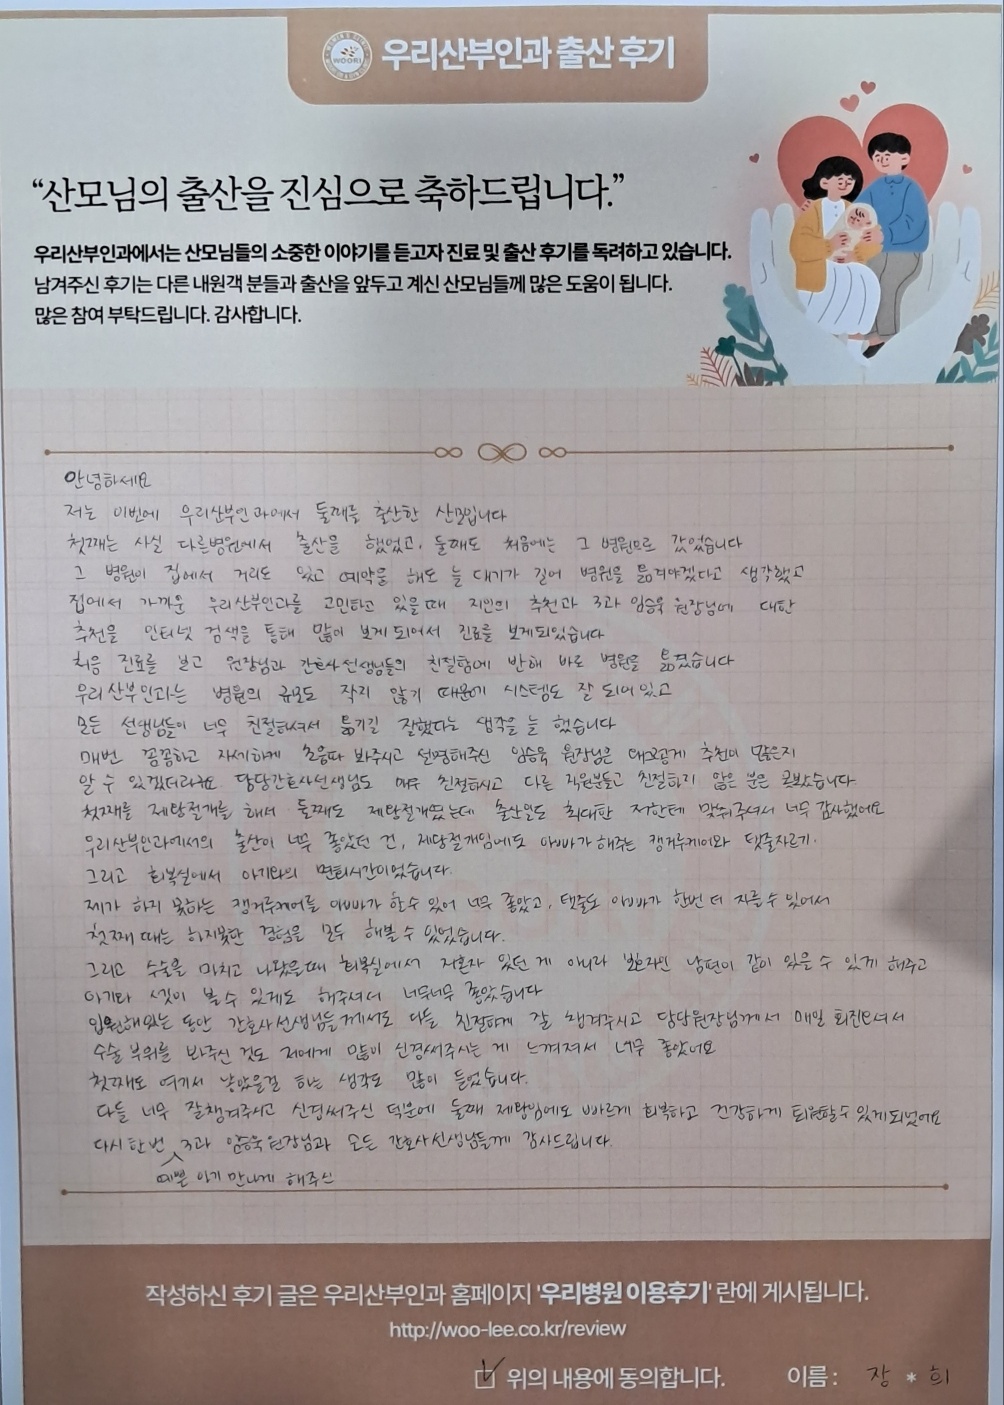 WOORI
우리산부인과 출산 후기
“산모님의 출산을 진심으로 축하드립니다.”
우리산부인과에서는 산모님들의 소중한 이야기를 듣고자 진료 및 출산 후기를 독려하고 있습니다.
남겨주신 후기는 다른 내원객 분들과 출산을 앞두고 계신 산모님들께 많은 도움이 됩니다.
많은 참여 부탁드립니다. 감사합니다.
안녕하세요
저는 이번에 우리산부인과에서 둘째를 출산한 산모입니다
첫째는 사실 다른병원에서 출산을 했었고, 둘째도 처음에는 그 병원으로 갔었습니다
그 병원이 집에서 거리도 있고 예약을 해도 늘 대기가 길어 병원을 옮겨야겠다고 생각했고
집에서 가까운 우리산부인과를 고민하고 있을때 지인의 추천과 3과 임승욱 원장님에 대한
추천을 인터넷 검색을 통해 많이 보게되어서 진료를 보게되었습니다
처음 진료를 보고 원장님과 간호사선생님들의 친절함에 반해 바로 병원을 옮겼습니다
우리산부인과는 병원의 규모도 작지 않기 때문에 시스템도 잘 되어있고
모든 선생님들이 너무 친절하셔서 옮기길 잘했다는 생각을 늘 했습니다
매번 꼼꼼하고 자세하게 초음파 봐주시고 설명해주신 임승욱 원장님은 왜그렇게 추천이 많은지
알 수 있겠더라구요 담당간호사선생님도 매우 친절하시고 다른 직원분들도 친절하지 않은 분은 못봤습니다
첫째를 제왕절개를 해서 둘째도 제왕절개였는데 출산일도 최대한 저한테 맞춰주셔서 너무 감사했어요
우리산부인과에서의 출산이 너무 좋았던 건, 제왕절개임에도 아빠가 해주는 캥거루케어와 탯줄자르기.
그리고 회복실에서 아기와의 면회시간이었습니다.
제가 하지 못하는 캥거루케어를 아빠가 할수 있어 너무 좋았고, 탯줄도 아빠가 한번 더 자를수 있어서
첫째 때는 하지못한 경험을 모두 해볼 수 있었습니다.
그리고 수술을 마치고 나왔을때 회복실에서 저혼자 있던 게 아니라 보호자인 남편이 같이 있을 수 있게 해주고
아기와 셋이 볼수 있게도 해주셔서 너무너무 좋았습니다
입원해있는 동안 간호사선생님들께서도 다들 친절하게 잘 챙겨주시고 담당원장님께서 매일 회진오셔서
수술 부위를 봐주신 것도 저에게 많이 신경써주시는 게 느껴져서 너무 좋았어요
첫째도 여기서 낳았을걸 하는 생각도 많이 들었습니다.
다들 너무 잘챙겨주시고 신경써주신 덕분에 둘째 제왕임에도 빠르게 회복하고 건강하게 퇴원할수 있게되었어요
다시 한번 3과 임승욱 원장님과 모든 간호사선생님들께 감사드립니다.
예쁜 아기 만나게 해주신
작성하신 후기 글은 우리산부인과 홈페이지 '우리병원 이용후기' 란에 게시됩니다.
http://woo-lee.co.kr/review
위의 내용에 동의합니다. 이름 : 장 * 희